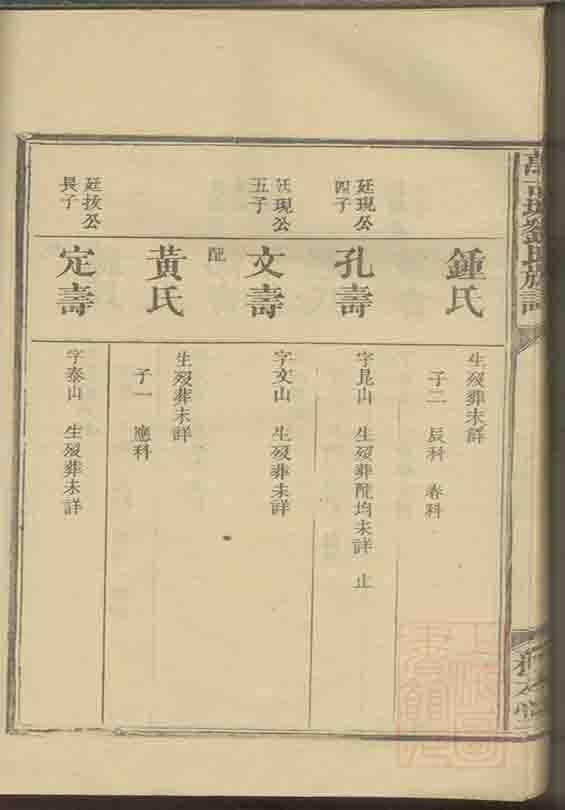 鍾氏
生歿葬未詳
子二 辰科 春科
廷現公
四子
孔壽
字昆山 生歿葬配均未詳 止
廷現公
五子
文壽
字文山 生歿葬未詳
配
黃氏
生歿葬未詳
子一 應科
廷拔公
長子
定壽
字泰山 生歿葬未詳